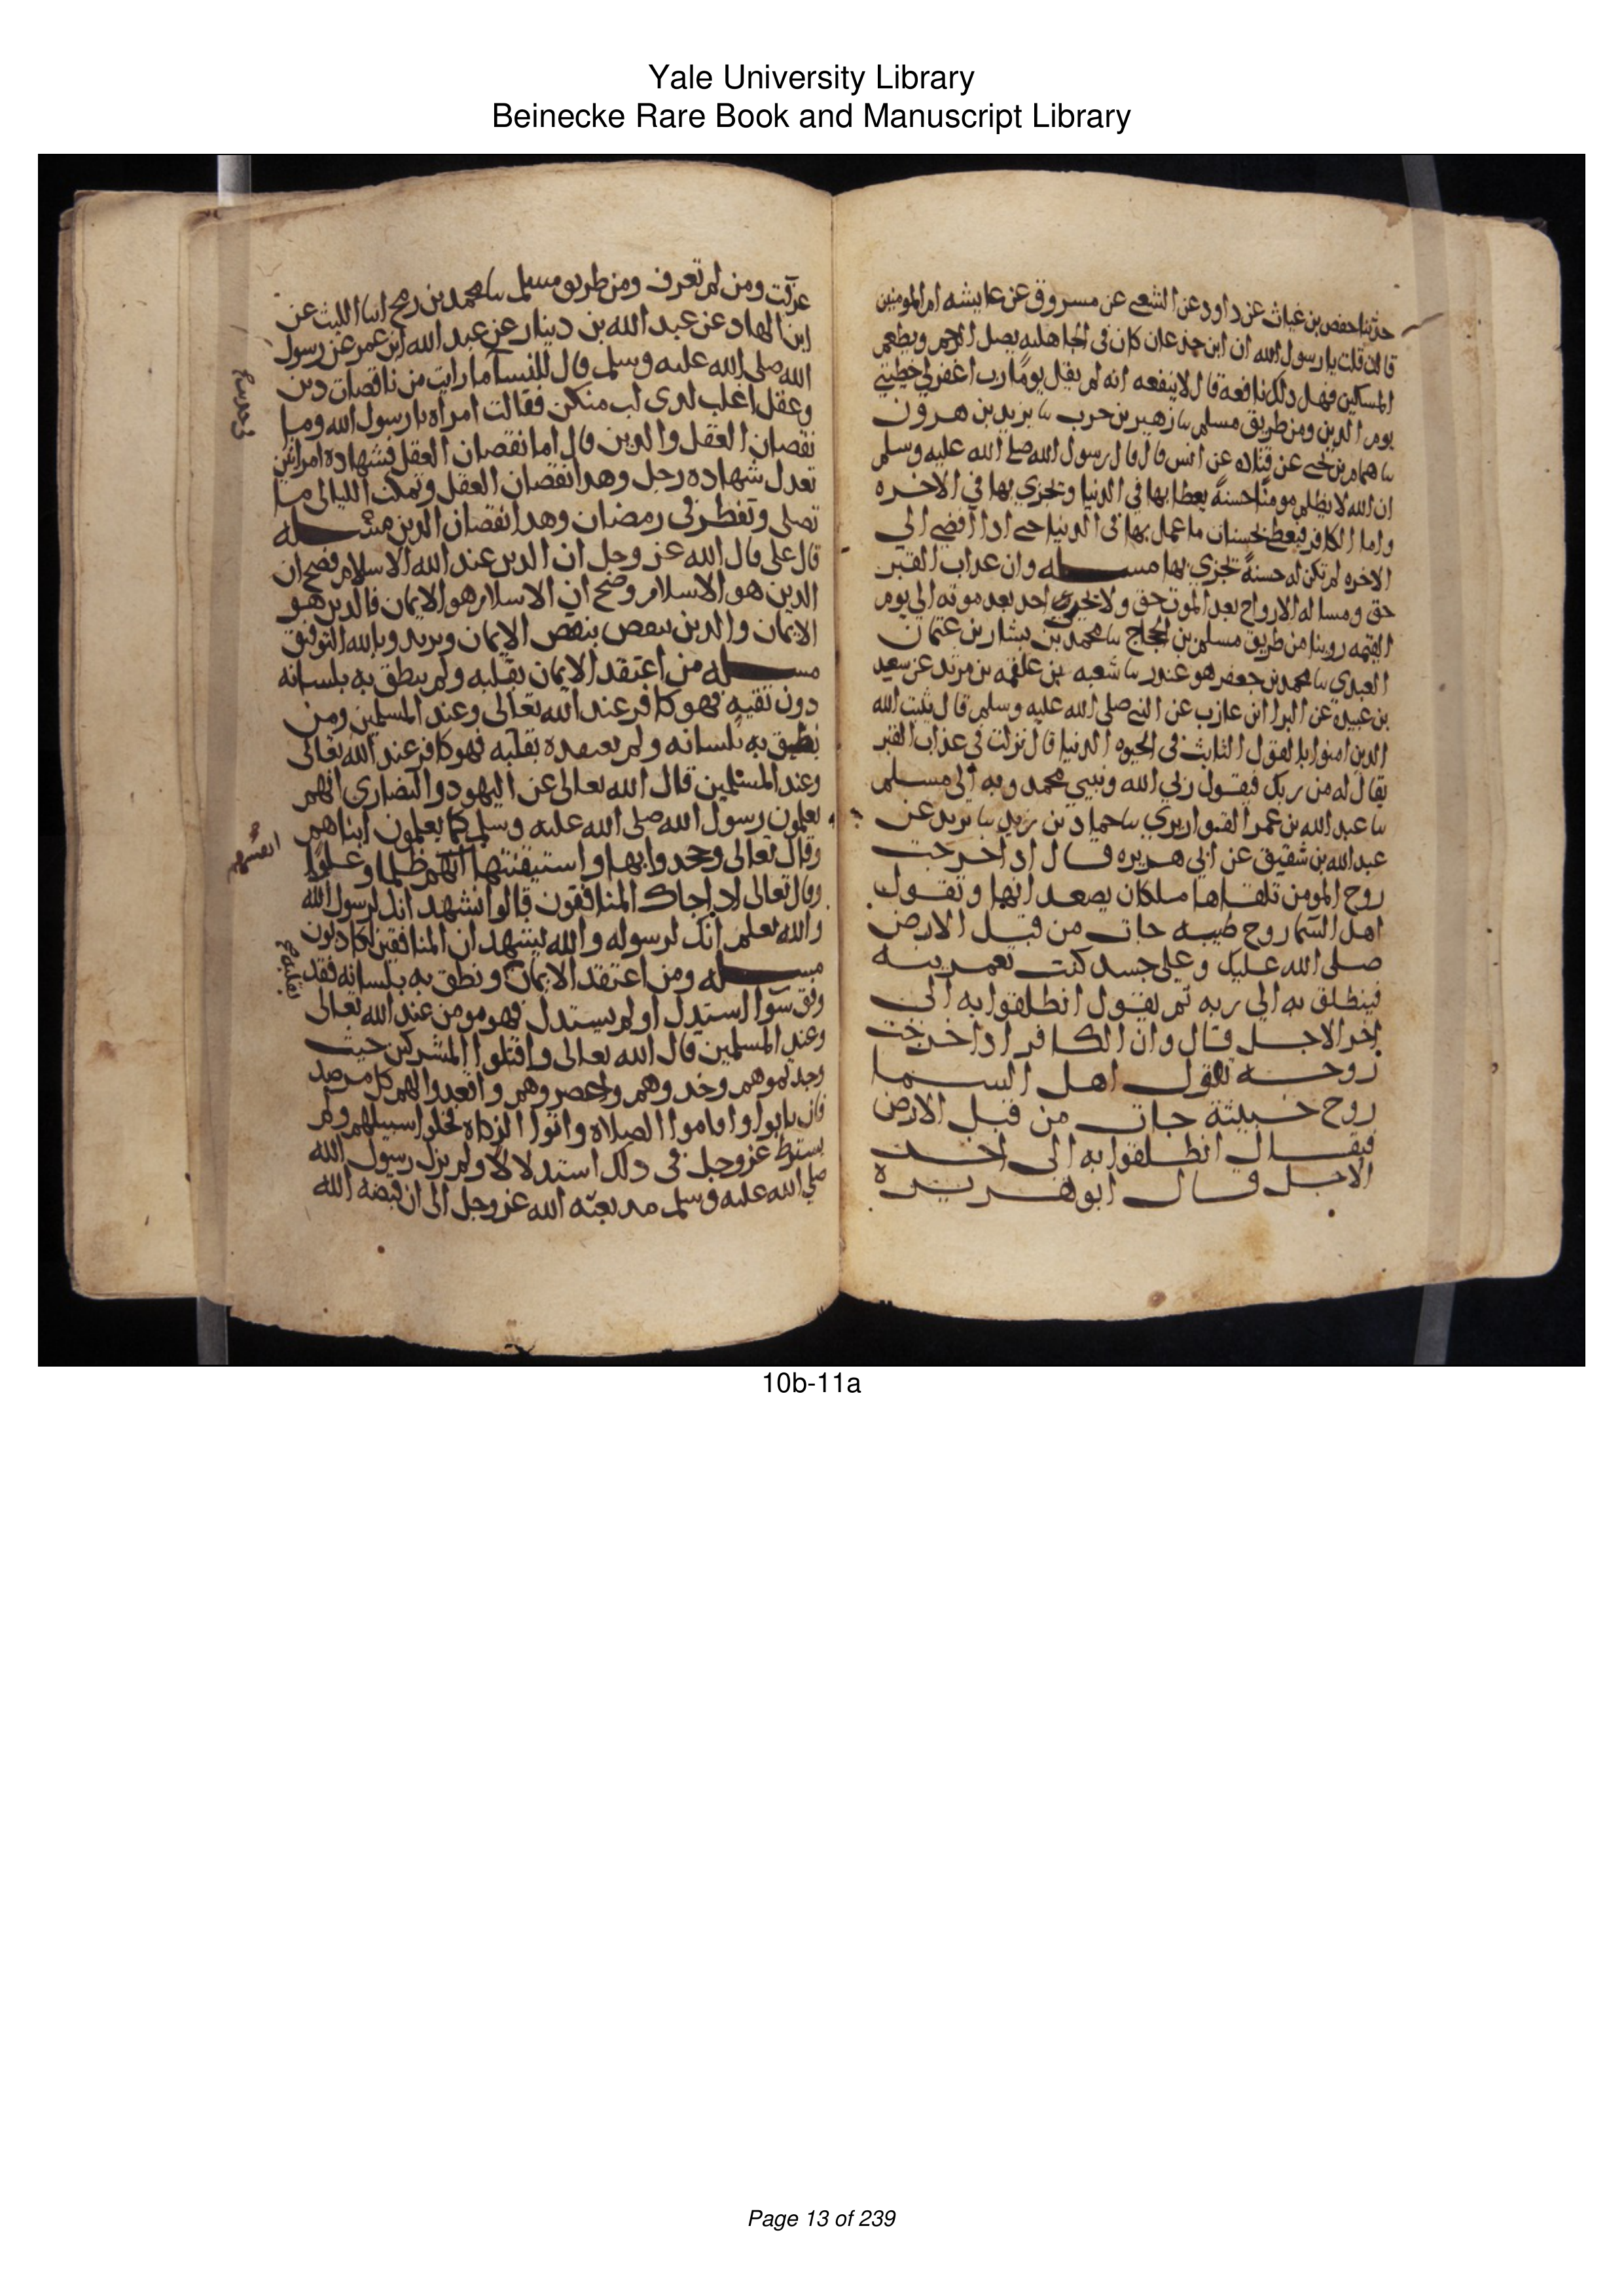 Yale University Library
Beinecke Rare Book and Manuscript Library
حدثنا حفص بن غياث عن داود عن الشعبي عن مسروق عن عايشه ام المومنين
قالت قلت يا رسول الله ان ابن جدعان كان في الجاهليه يصل الرحم ويطعم
المسكين فهل ذلك نافعة قال لا ينفعه انه لم يقل يومًا رب اغفر لي خطيتي
يوم الدين ومن طريق مسلم نا زهير بن حرب نا يزيد بن هرون
نا همام بن يحيى عن قتاده عن انس قال قال رسول الله صلى الله عليه وسلم
ان الله لا يظلم مومنًا حسنةً يعطا بها في الدنيا وتجزي بها في الاخره
واما الكافر فيعطى بحسنات ما عمل بها في الدنيا حتى اذا أفضى الي
الاخره لم تكن له حسنةً تجزي بها مسله وان عذاب القبر
حق ومساله الارواح بعد الموت حق ولا احد بعد موته الي يوم
القيمه روينا من طريق مسلم بن الحجاج نا محمد بن بشار بن عثمان
العبدي نا محمد بن جعفر هو غندر نا شعبه بن علقمه بن مرثد عن سعيد
بن عبيدة عن البرا ابن عازب عن النبي صلى الله عليه وسلم قال يثبت الله
الذين امنوا با لقول الثابت في الحيوه الدنيا قال نزلت في عذاب القبر
يقال له من ربك فيقول ربي الله ونبيي محمد وبه الى مسلم
نا عبد الله بن عمر القواريري نا حماد بن زيد نا بديل عن
عبد الله بن شقيق عن ابي هريره قال اذا خرجت
روح المومن تلقاها ملكان يصعد انها وتقول
اهل السما روح طيبه جات من قبل الارض
صلى الله عليك وعلى جسد كنت تعمرينه
فينطلق به الي ربه ثم يقول انطلقوا به الى
اخر الاجل قال وان الكافر اذا خرجت
روحه تقول اهل السما
روح خبيثة جات من قبل الارض
فيقال انطلقوا به الى اخر
الاجل قال ابو هريره
عرفت ومن لم تعرف ومن طريق مسلم نا محمد بن رمح انا الليث عن
ابن الهاد عن عبد الله بن دينار عن عبد الله ابن عمر عن رسول
الله صلى الله عليه وسلم قال للنسآ ما رايت من ناقصات دين
وعقل اغلب لذى لب منكن فقالت امراه يا رسول الله وما
نقصان العقل والدين قال اما نقصان العقل فشهاده امراتين
تعدل شهاده رجل وهذا نقصان العقل وتمكث الليالى ما
تصلى وتفطر في رمضان وهذا نقصان الدين مسله
قال على قال الله عز وجل ان الدين عند الله الاسلام فصح ان
الدين هو الاسلام وصح ان الاسلام هو الايمان فالدين هو
الايمان والدين ينقص بنقص الايمان ويزيد وبالله التوفيق
مسله من اعتقد الايمان بقلبه ولم ينطق به بلسانه
دون تقيه فهو كافر عند الله تعالى وعند المسلمين ومن
نطق به بلسانه ولم يعتقده بقلبه فهو كافر عند الله تعالى
وعند المسلمين قال الله تعالى عن اليهود والنصارى انهم
يعلمون رسول الله صلى الله عليه وسلم كما يعلمون ابناهم
وقال تعالى وجحدوا بها واستيقنتها انفسهم ظلما وعلوًا
وقال تعالى اذا جاك المنافقون قالوا نشهد انك لرسول الله
والله يعلم انك لرسوله والله يشهد ان المنافقين لكاذبون
مسله ومن اعتقد الايمان ونطق به بلسانه فقد
وفق سوا استدل او لم يستدل فهو مومن عند الله تعالى
وعند المسلمين قال الله تعالى واقتلوا المشركين حيث
وجدتموهم وخذوهم واحصروهم واقعدوا لهم كل مرصد
فان تابوا واقاموا الصلاة واتوا الزكاه فخلوا سبيلهم ولم
يشترط عز وجل في ذلك استدلالا ولم يزل رسول الله
صلى الله عليه وسلم مذ بعثه الله عز وجل الى ان قبضه الله
انفسهم
بقلبه
10b-11a
Page 13 of 239